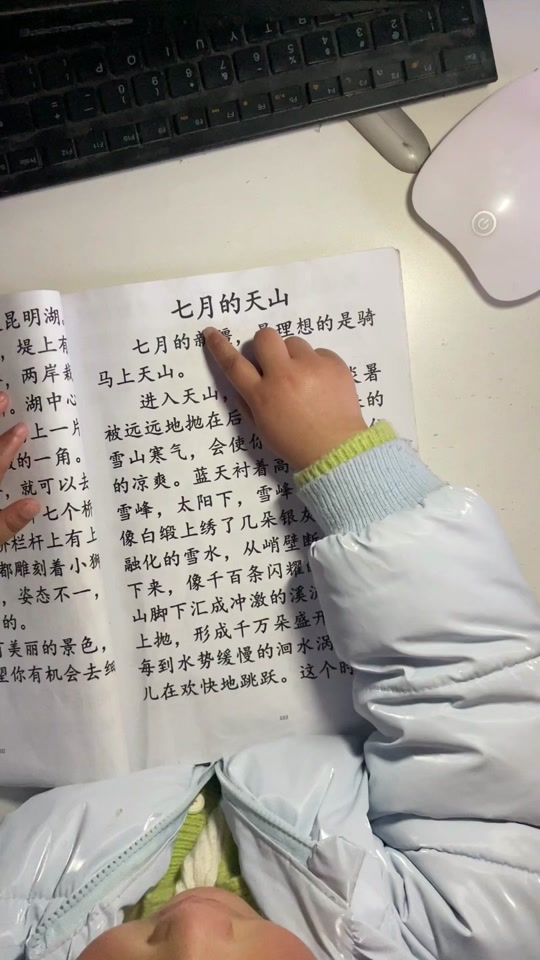 昆明湖。
，堤上有
，两岸栽
。湖中心
上一片
的一角。
，就可以去
七个桥
栏杆上有上
都雕刻着小狮
，姿态不一，
的。
美丽的景色，
你有机会去细
七月的天山
七月的新疆，是理想的是骑
马上天山。
进入天山，暑
被远远地抛在后的
雪山寒气，会使你
的凉爽。蓝天衬着高
雪峰，太阳下，雪峰
像白缎上绣了几朵银灰
融化的雪水，从峭壁断
下来，像千百条闪耀
山脚下汇成冲激的溪流
上抛，形成千万朵盛开
每到水势缓慢的洄水涡
儿在欢快地跳跃。这个时